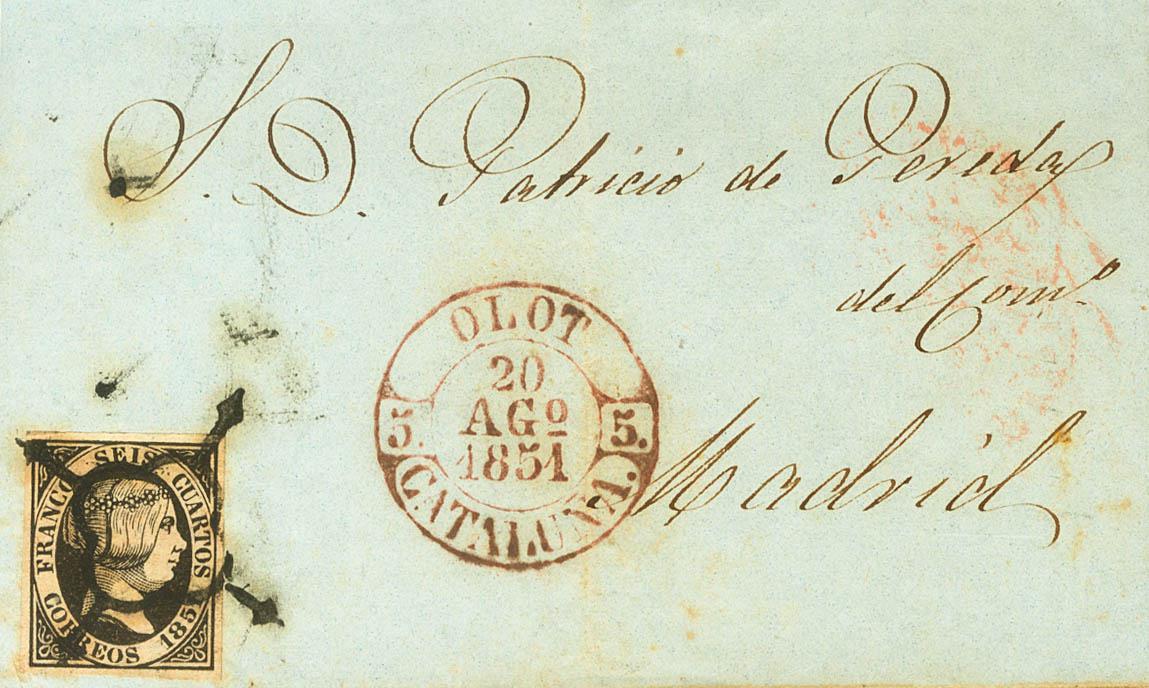 S. D. Patricio de Pereda
del Com.º
Madrid
OLOT
20
AGº
1851
5. 5.
CATALUÑA.
FRANCO SEIS CUARTOS
CORREOS 1851